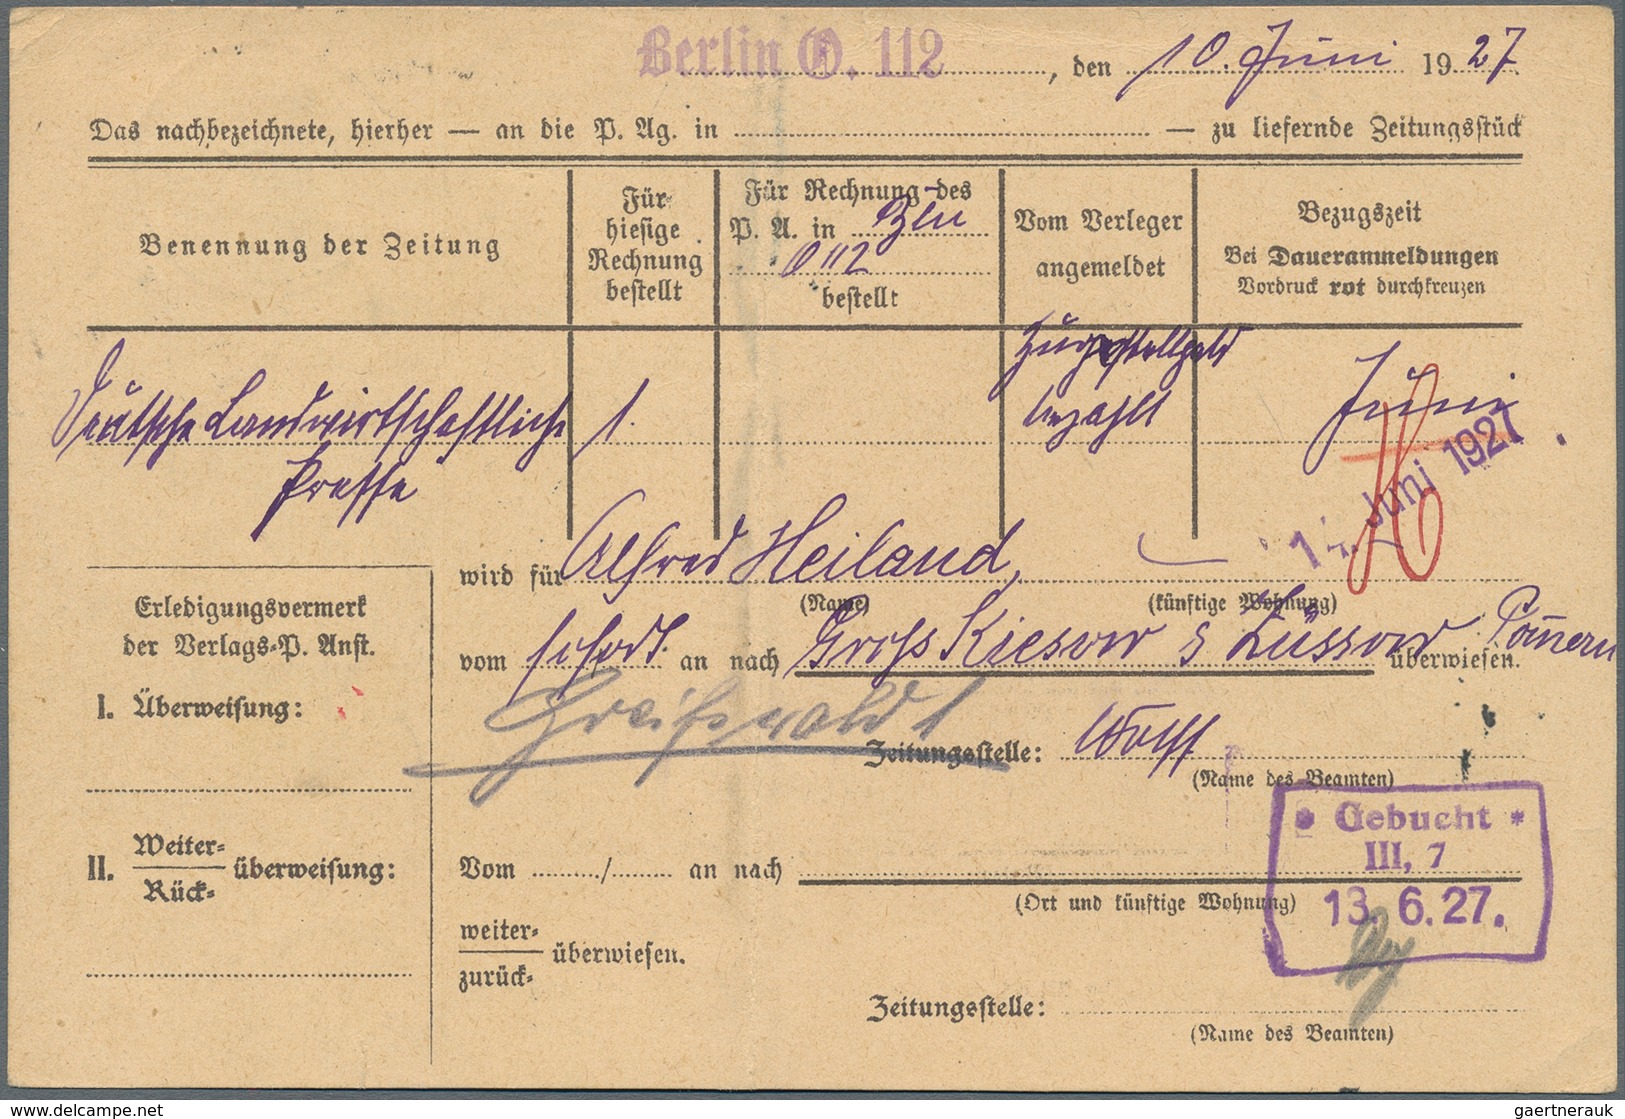 Berlin O. 112, den 10. Juni 1927
Das nachbezeichnete, hierher — an die P. Ag. in — zu liefernde Zeitungsstück
Benennung der Zeitung
Für hiesige Rechnung bestellt
Für Rechnung des P. A. in Bln O 112 bestellt
Vom Verleger angemeldet
Bezugszeit
Bei Daueranmeldungen
Vordruck rot durchkreuzen
Deutsche Landwirtschaftliche
Presse
1.
Zugestellgeld
bezahlt
Juni
Juni 1927
wird für Alfred Heiland,
(Name) (künftige Wohnung)
vom sofort an nach Gross Kiesow s Züssow Pommern überwiesen.
Greifswald 1
Zeitungsstelle: Wolff
(Name des Beamten)
Erledigungsvermerk
der Verlags-P. Anst.
I. Überweisung:
II. Weiter- Rück- überweisung:
Vom / an nach
(Ort und künftige Wohnung)
weiter- zurück- überwiesen.
Zeitungsstelle:
(Name des Beamten)
* Gebucht *
III, 7
13. 6. 27.
www.delcampe.net
gaertnerauk